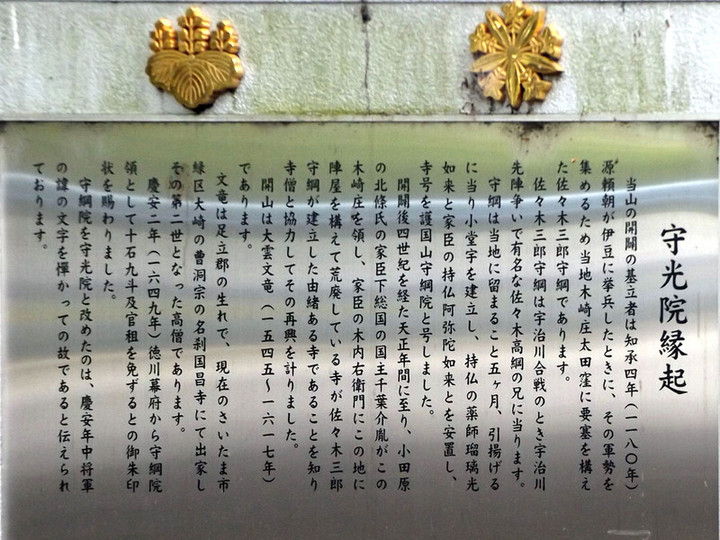 守光院縁起
当山の開闢の基立者は知承四年(一一八〇年)
源頼朝が伊豆に挙兵したときに、その軍勢を
集めるため当地木崎庄太田窪に要塞を構え
た佐々木三郎守綱であります。
佐々木三郎守綱は宇治川合戦のとき宇治川
先陣争いで有名な佐々木高綱の兄に当ります。
守綱は当地に留まること五ヶ月、引揚げる
に当り小堂宇を建立し、持仏の薬師瑠璃光
如来と家臣の持仏阿弥陀如来とを安置し、
寺号を護国山守綱院と号しました。
開闢後四世紀を経た天正年間に至り、小田原
の北條氏の家臣下総国の国主千葉介胤がこの
木崎庄を領し、家臣の木内右衛門にこの地に
陣屋を構えて荒廃している寺が佐々木三郎
守綱が建立した由緒ある寺であることを知り
寺僧と協力してその再興を計りました。
開山は大雲文竜(一五四五〜一六一七年)
であります。
文竜は足立郡の生れで、現在のさいたま市
緑区大崎の曹洞宗の名刹国昌寺にて出家し
その第二世となった高僧であります。
慶安二年(一六四九年)徳川幕府から守綱院
領として十石九斗及官租を免ずるとの御朱印
状を賜わりました。
守綱院を守光院と改めたのは、慶安年中将軍
の諱の文字を憚かっての故であると伝えられ
ております。